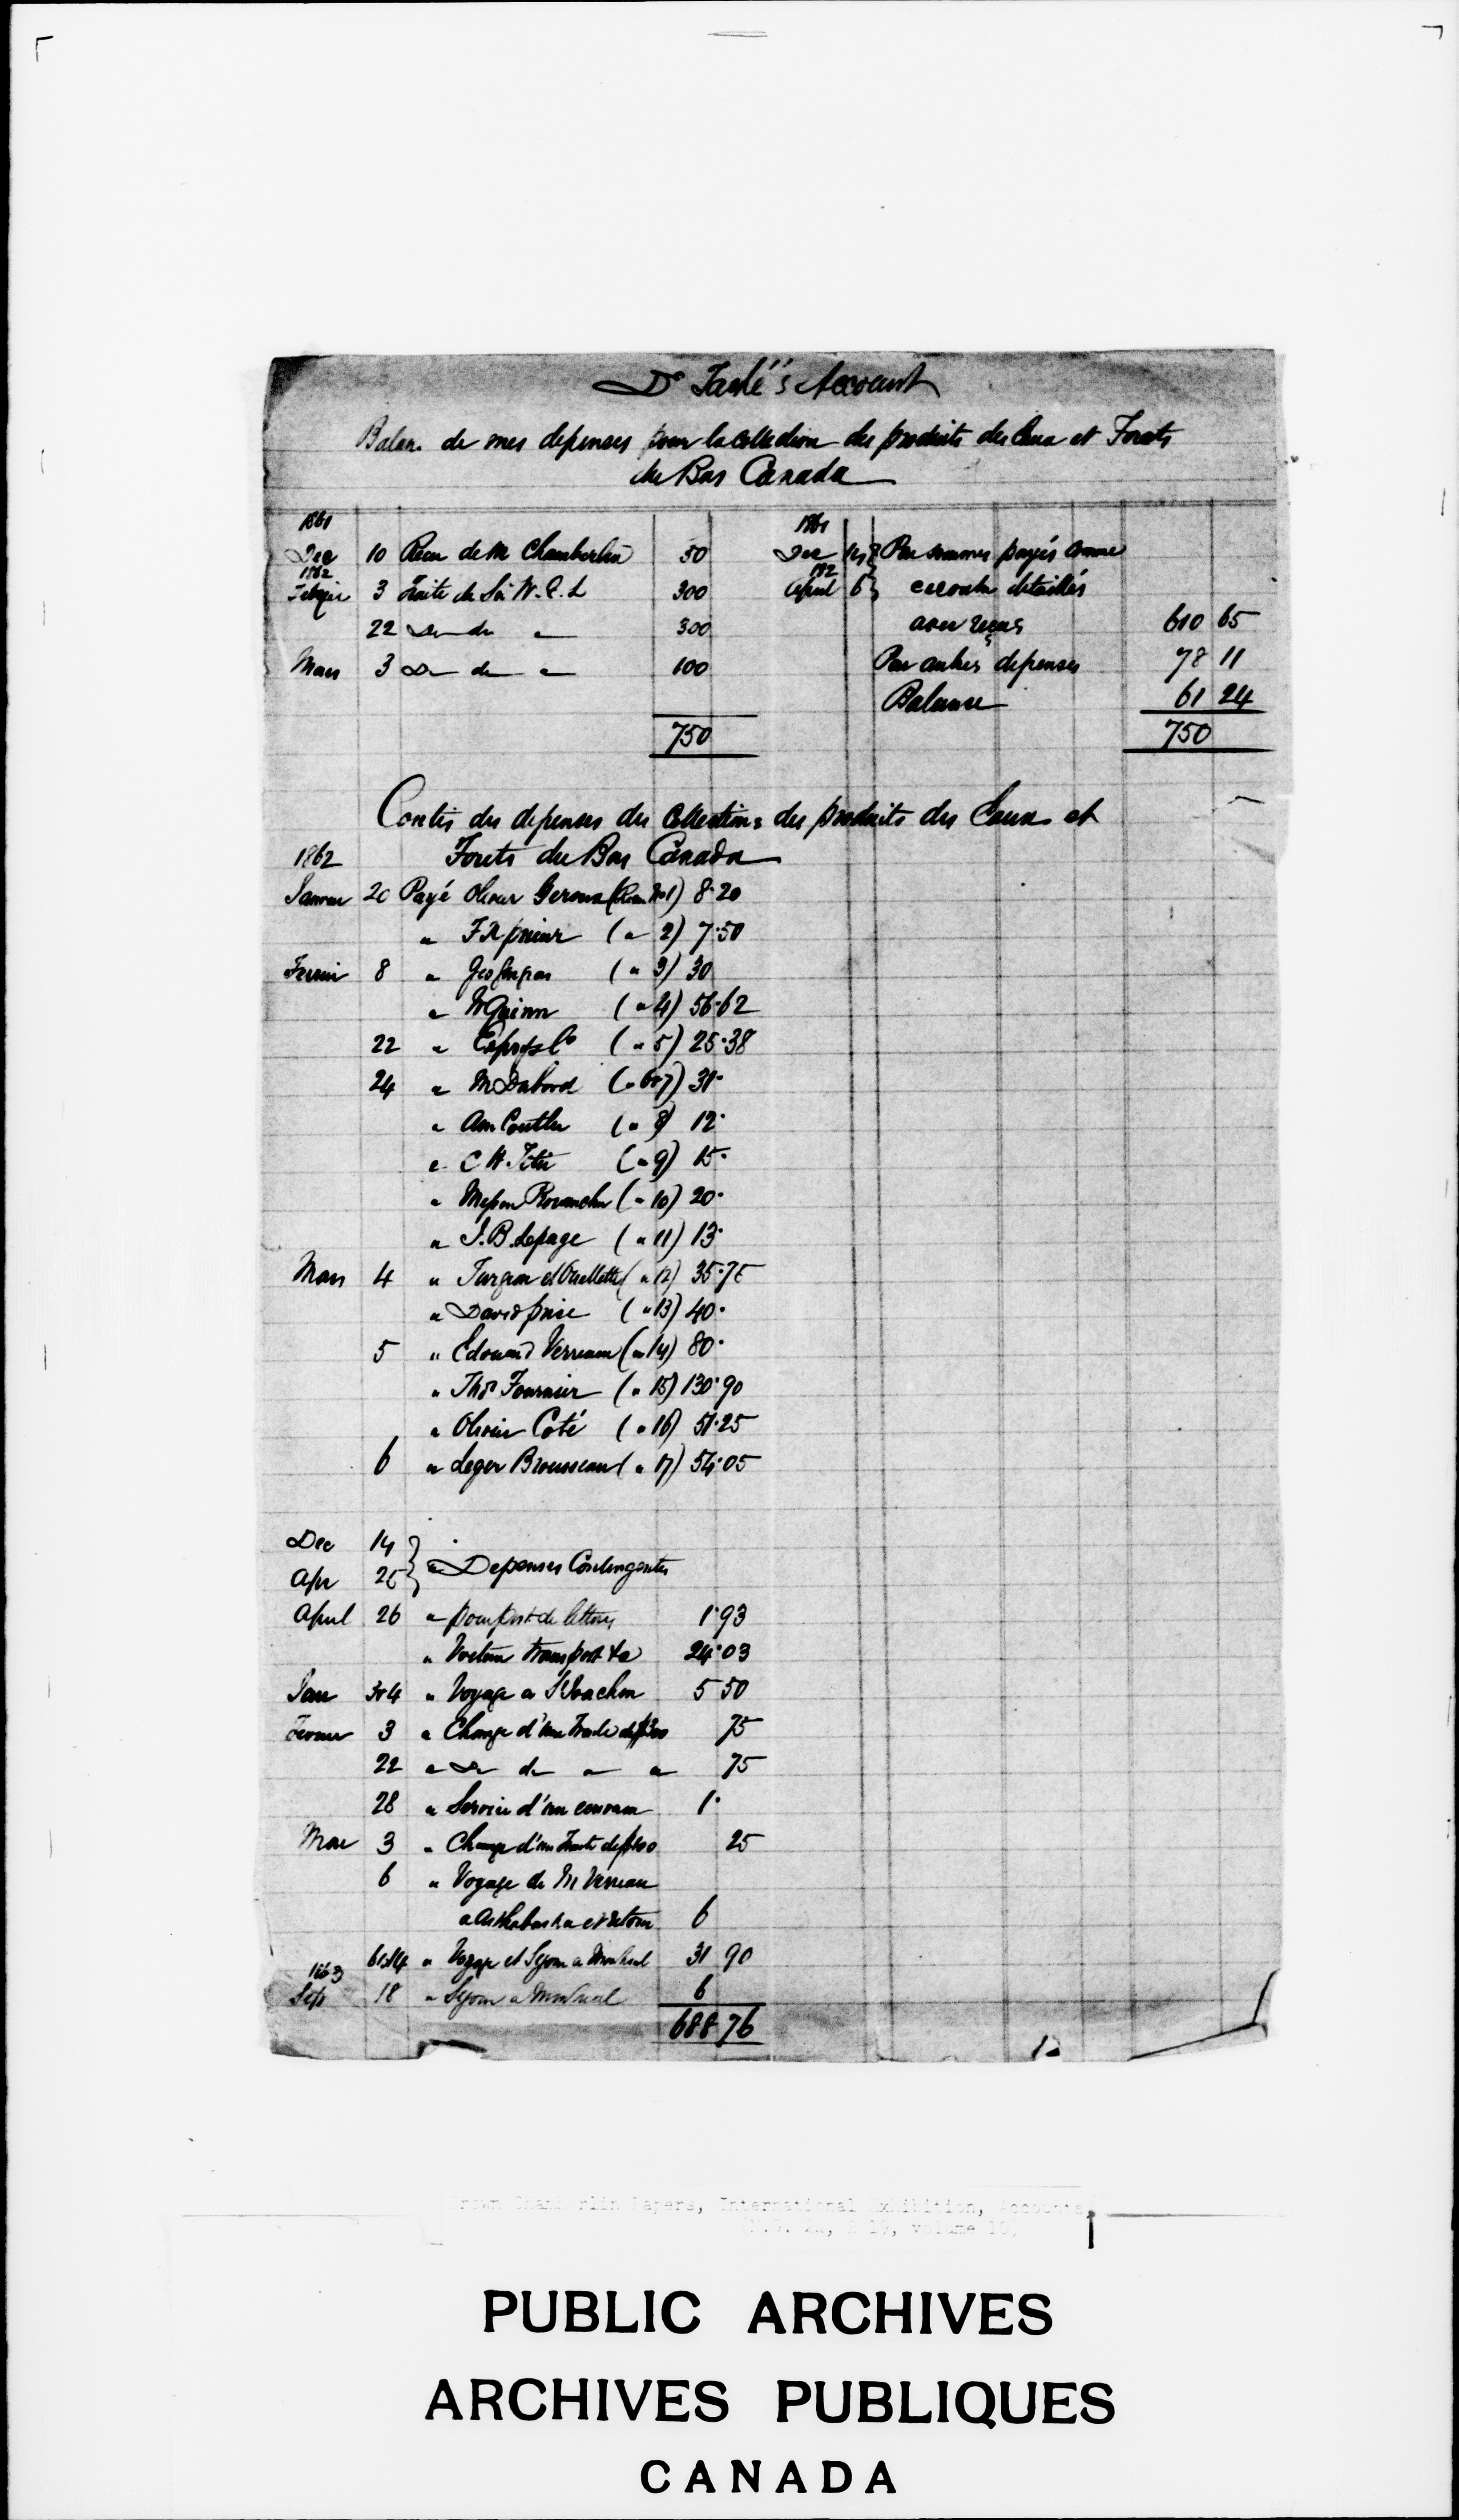 Dr Taché's Account
Balan. de mes depenses pour la collection des produits des Eaux et Forets
du Bas Canada
1861
Dec 10 Recu de M Chamberlin 50
1862
3 Traite de Sir W. E. L 300
22 Do do " 300
Mars 3 Do do " 100
750
1861
Dec 14 Par sommes payés comme
1862
April 6 detaillés
avec reçus 610 65
Par autres depenses 78 11
Balance 61 24
750
des depenses des Collections des produits des Eaux et
Forets du Bas Canada
1862
Janvier 20 Payé Olivier (Recu No 1) 8.20
" (" 2) 7.50
8 " Geo (" 3) 30
" W Quinn (" 4) 56.62
22 " Co (" 5) 25.38
24 " M Dabord (" 6&7) 31.
" (" 8) 12.
" C H Tetu (" 9) 15.
" (" 10) 20.
" J. B. Lepage (" 11) 13.
Mars 4 " Turgeon et Ouellette (" 12) 35.75
" David Price (" 13) 40.
5 " Edouard Verreau (" 14) 80.
" Thos Fournier (" 15) 130.90
" Olivier Coté (" 16) 51.25
6 " Leger Brousseau (" 17) 54.05
Dec 14
Apr 25 " Depenses Contingentes
April 26 " pour port de lettres 1.93
" Voiture transport &a 24.03
Jan 3&4 " Voyage a St Joachim 5 50
3 " Change d'une Traite de $300 75
22 " Do do " " 75
28 " Service d'un 1.
Mar 3 " Change d'une Traite de $100 25
6 " Voyage de M Verreau
a Arthabaska et retour 6
6 14 " Voyage et Sejour a Montreal 31 90
1863
Sep 18 " Sejour a Montreal 6
688 76
Brown Chamberlin Papers, International Exhibition, Accounts,
PUBLIC ARCHIVES
ARCHIVES PUBLIQUES
CANADA